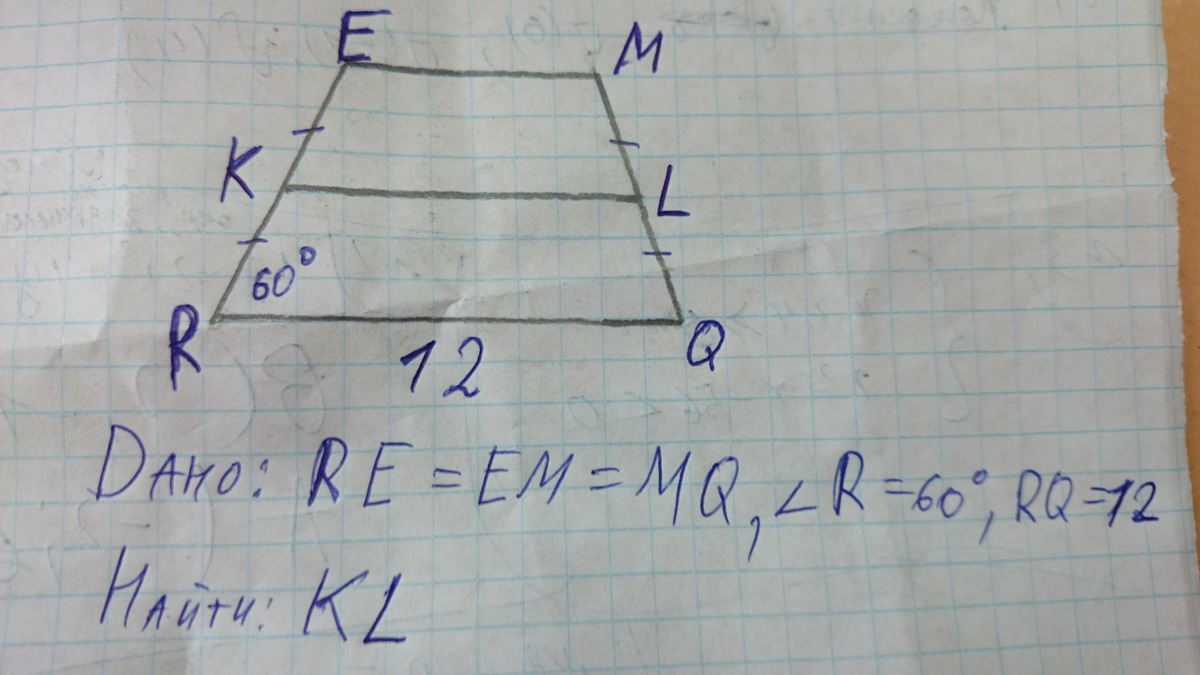 E
M
K
L
60°
R
Q
12
Дано: RE = EM = MQ, ∠R = 60°, RQ = 12
Найти: KL